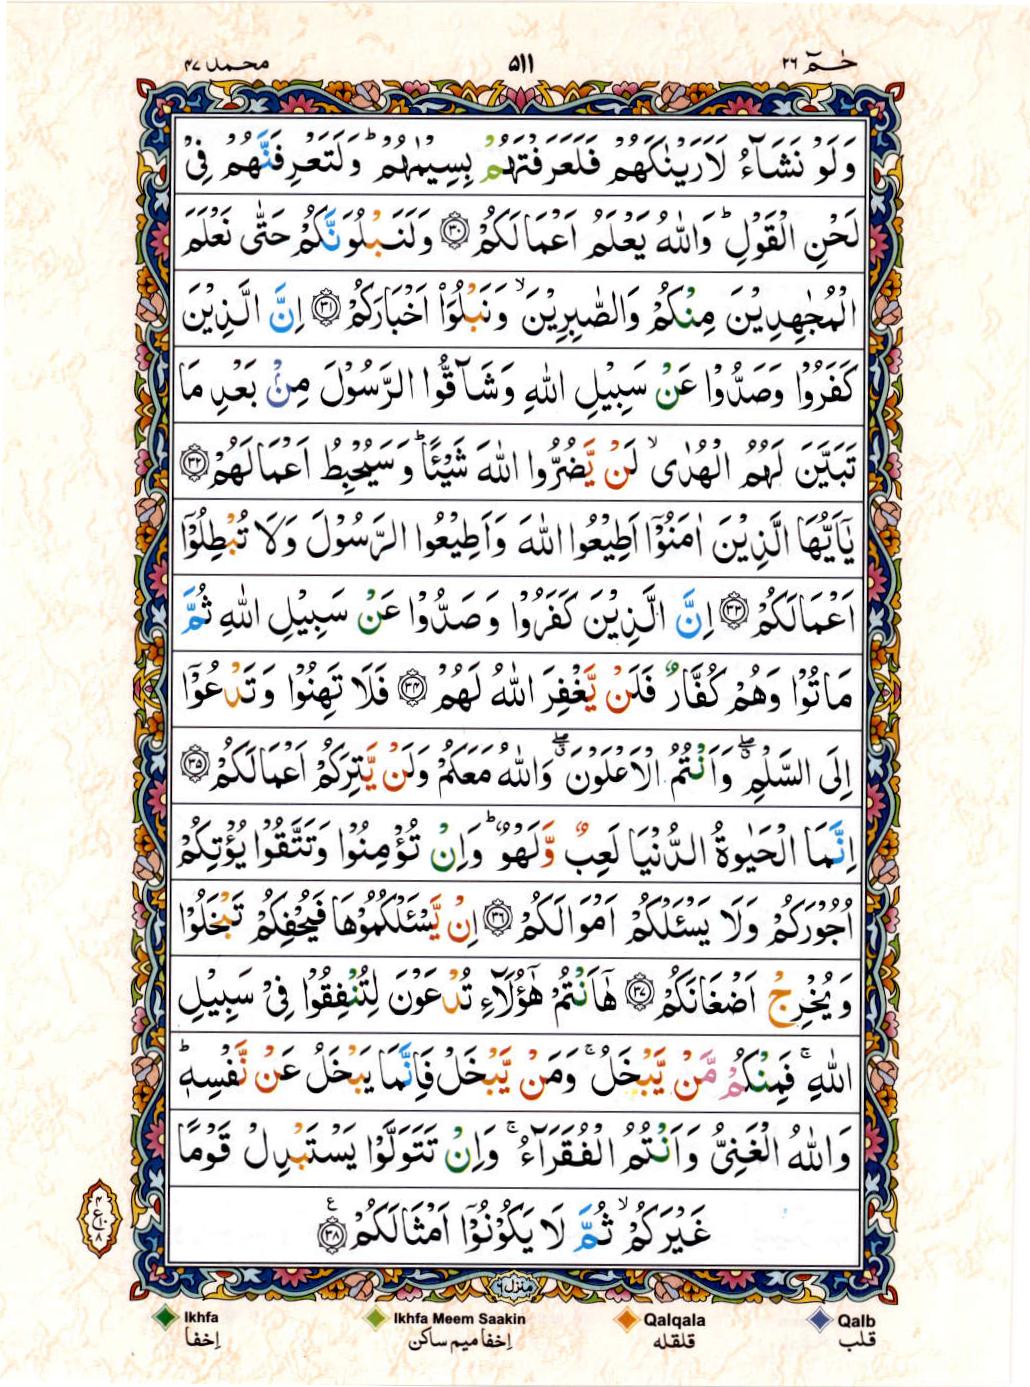 محمد ۴۷ ۵۱۱ حٰمٓ ۲۶
وَلَوْ نَشَآءُ لَاَرَيْنٰكَهُمْ فَلَعَرَفْتَهُمْ بِسِيْمٰهُمْ ؕ وَلَتَعْرِفَنَّهُمْ فِىْ
لَحْنِ الْقَوْلِ ؕ وَاللّٰهُ يَعْلَمُ اَعْمَالَكُمْ ﴿۳۰﴾ وَلَنَبْلُوَنَّكُمْ حَتّٰى نَعْلَمَ
الْمُجٰهِدِيْنَ مِنْكُمْ وَالصّٰبِرِيْنَ ۙ وَنَبْلُوَا۟ اَخْبَارَكُمْ ﴿۳۱﴾ اِنَّ الَّذِيْنَ
كَفَرُوْا وَصَدُّوْا عَنْ سَبِيْلِ اللّٰهِ وَشَآقُّوا الرَّسُوْلَ مِنْۢ بَعْدِ مَا
تَبَيَّنَ لَهُمُ الْهُدٰى ۙ لَنْ يَّضُرُّوا اللّٰهَ شَيْئًا ؕ وَسَيُحْبِطُ اَعْمَالَهُمْ ﴿۳۲﴾
يٰۤاَيُّهَا الَّذِيْنَ اٰمَنُوْۤا اَطِيْعُوا اللّٰهَ وَاَطِيْعُوا الرَّسُوْلَ وَلَا تُبْطِلُوْۤا
اَعْمَالَكُمْ ﴿۳۳﴾ اِنَّ الَّذِيْنَ كَفَرُوْا وَصَدُّوْا عَنْ سَبِيْلِ اللّٰهِ ثُمَّ
مَاتُوْا وَهُمْ كُفَّارٌ فَلَنْ يَّغْفِرَ اللّٰهُ لَهُمْ ﴿۳۴﴾ فَلَا تَهِنُوْا وَتَدْعُوْۤا
اِلَى السَّلْمِ ۖۗ وَاَنْتُمُ الْاَعْلَوْنَ ۖۗ وَاللّٰهُ مَعَكُمْ وَلَنْ يَّتِرَكُمْ اَعْمَالَكُمْ ﴿۳۵﴾
اِنَّمَا الْحَيٰوةُ الدُّنْيَا لَعِبٌ وَّلَهْوٌ ؕ وَاِنْ تُؤْمِنُوْا وَتَتَّقُوْا يُؤْتِكُمْ
اُجُوْرَكُمْ وَلَا يَسْـَٔلْكُمْ اَمْوَالَكُمْ ﴿۳۶﴾ اِنْ يَّسْـَٔلْكُمُوْهَا فَيُحْفِكُمْ تَبْخَلُوْا
وَيُخْرِجْ اَضْغَانَكُمْ ﴿۳۷﴾ هٰۤاَنْتُمْ هٰٓؤُلَآءِ تُدْعَوْنَ لِتُنْفِقُوْا فِىْ سَبِيْلِ
اللّٰهِ ۚ فَمِنْكُمْ مَّنْ يَّبْخَلُ ۚ وَمَنْ يَّبْخَلْ فَاِنَّمَا يَبْخَلُ عَنْ نَّفْسِهٖ ؕ
وَاللّٰهُ الْغَنِىُّ وَاَنْتُمُ الْفُقَرَآءُ ۚ وَاِنْ تَتَوَلَّوْا يَسْتَبْدِلْ قَوْمًا
غَيْرَكُمْ ۙ ثُمَّ لَا يَكُوْنُوْۤا اَمْثَالَكُمْ ﴿۳۸﴾ ع
۴ ع ۱۰ ۸
منزل ۶
Ikhfa Ikhfa Meem Saakin Qalqala Qalb
إخفا إخفا ميم ساكن قلقله قلب